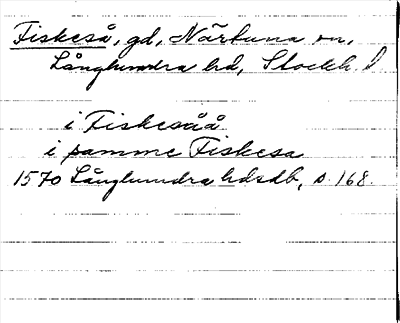 Fiskeså, gd, Närtuna sn,
Långhundra hd, Stockh. l
i Fiskesåå
i samme Fiskesa
1570 Långhundra hdsdb, s. 168.